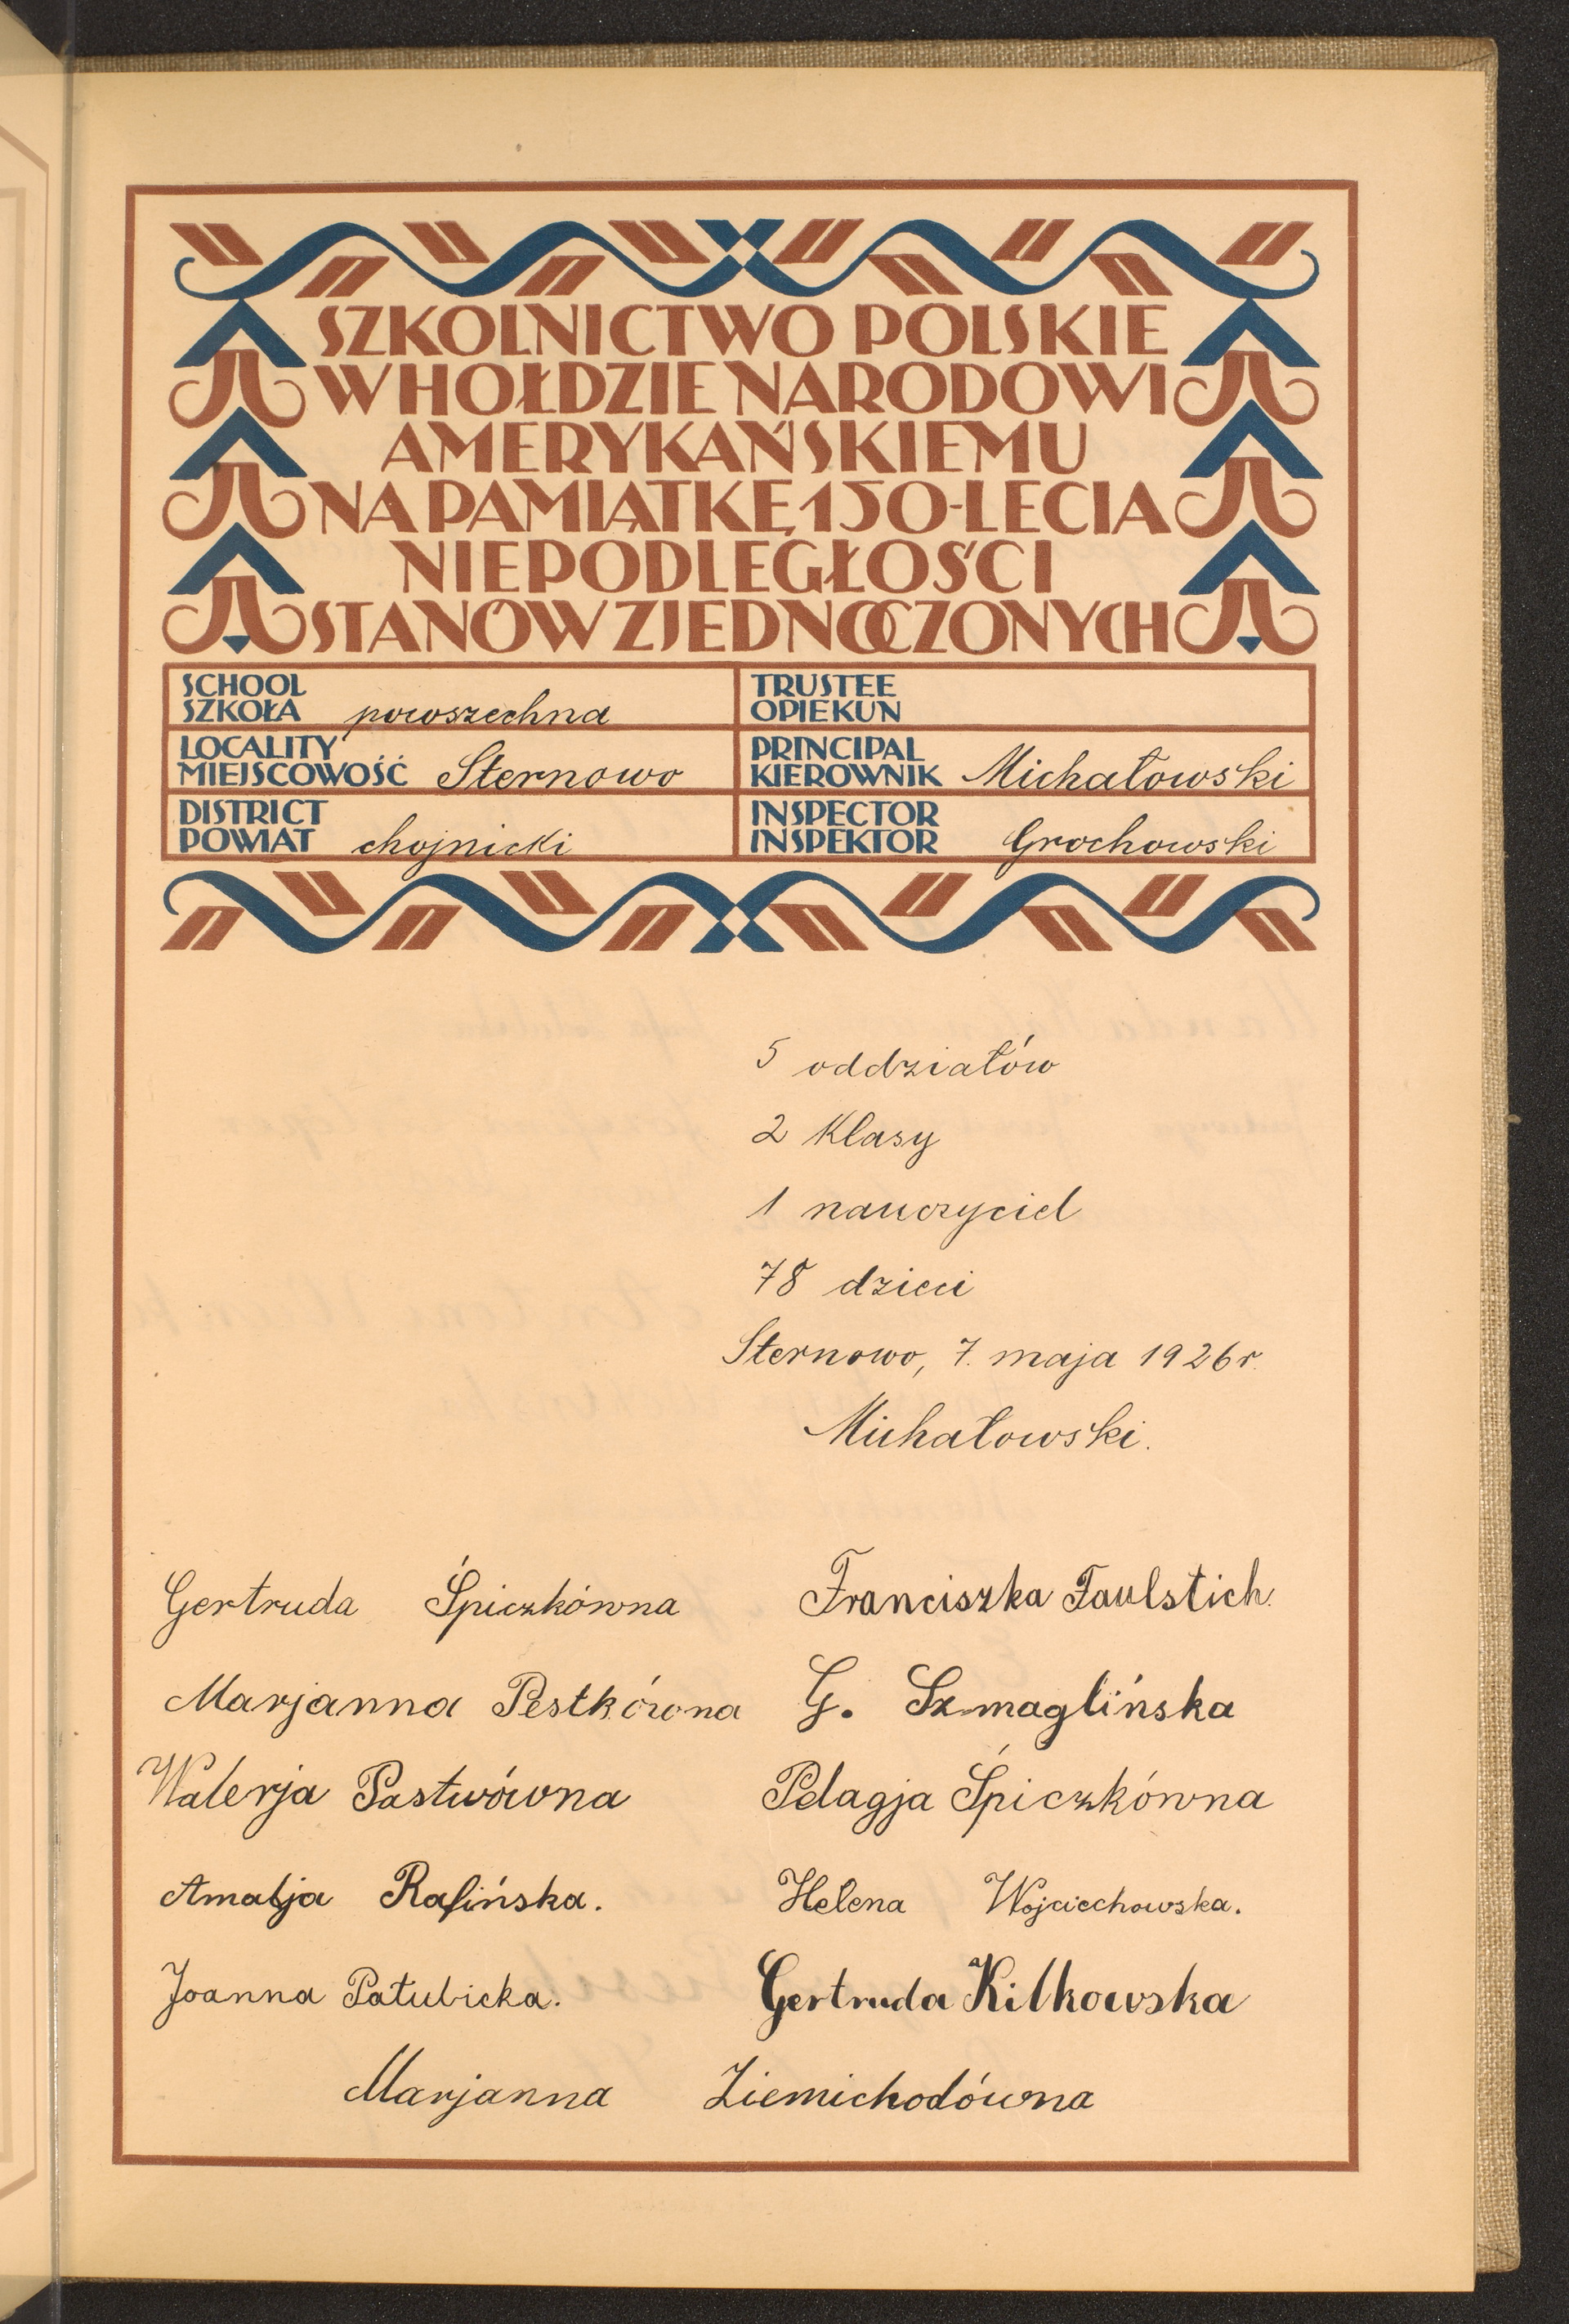 SZKOLNICTWO POLSKIE
W HOŁDZIE NARODOWI
AMERYKAŃSKIEMU
NA PAMIĄTKĘ 150-LECIA
NIEPODLEGŁOŚCI
STANÓW ZJEDNOCZONYCH
SCHOOL
SZKOŁA powszechna
TRUSTEE
OPIEKUN
LOCALITY
MIEJSCOWOŚĆ Sternowo
PRINCIPAL
KIEROWNIK Michałowski
DISTRICT
POWIAT chojnicki
INSPECTOR
INSPEKTOR Grochowski
5 oddziałów
2 klasy
1 nauczyciel
78 dzieci
Sternowo, 7. maja 1926 r.
Michałowski.
Gertruda Śpiczkówna Franciszka Faulstich.
Marjanna Pestkówna G. Szmaglińska
Walerja Pastwówna Pelagja Śpiczkówna
Amalja Rafińska. Helena Wojciechowska.
Joanna Patubicka. Gertruda Kilkowska
Marjanna Ziemichodówna